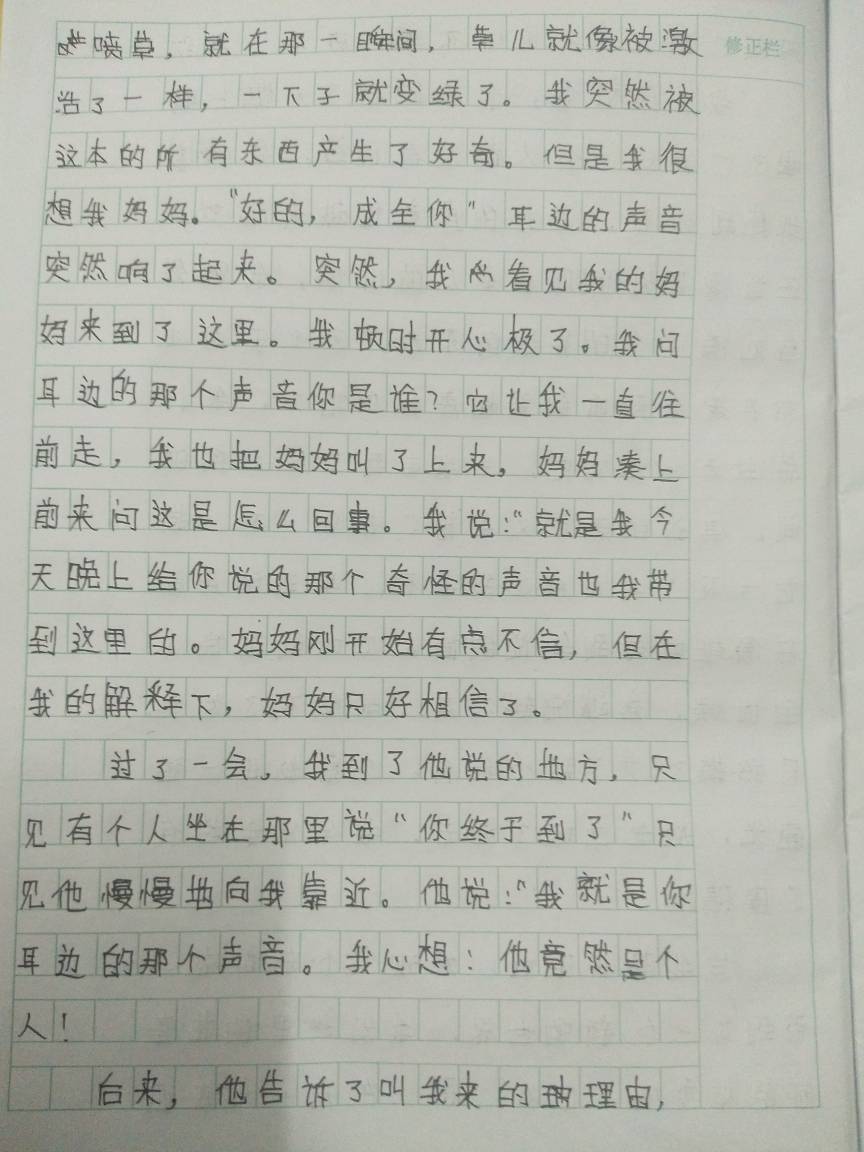 喷草，就在那一瞬间，草儿就像被激
活了一样，一下子就变绿了。我突然被
这本的所有东西产生了好奇。但是我很
想我妈妈。“好的，成全你”耳边的声音
突然响了起来。突然，我看见我的妈
妈来到了这里。我顿时开心极了。我问
耳边的那个声音你是谁？它让我一直往
前走，我也把妈妈叫了上来，妈妈凑上
前来问这是怎么回事。我说：“就是我今
天晚上给你说的那个奇怪的声音也我带
到这里的。妈妈刚开始有点不信，但在
我的解释下，妈妈只好相信了。
过了一会，我到了他说的地方，只
见有个人坐在那里说“你终于到了”只
见他慢慢地向我靠近。他说：“我就是你
耳边的那个声音。我心想：他竟然是个
人！
后来，他告诉了叫我来的理由，
修正栏